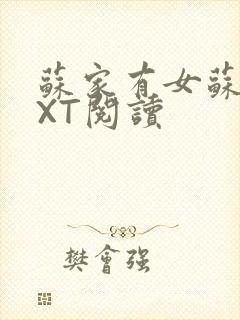 蘇家有女蘇
XT閱讀
樊會强